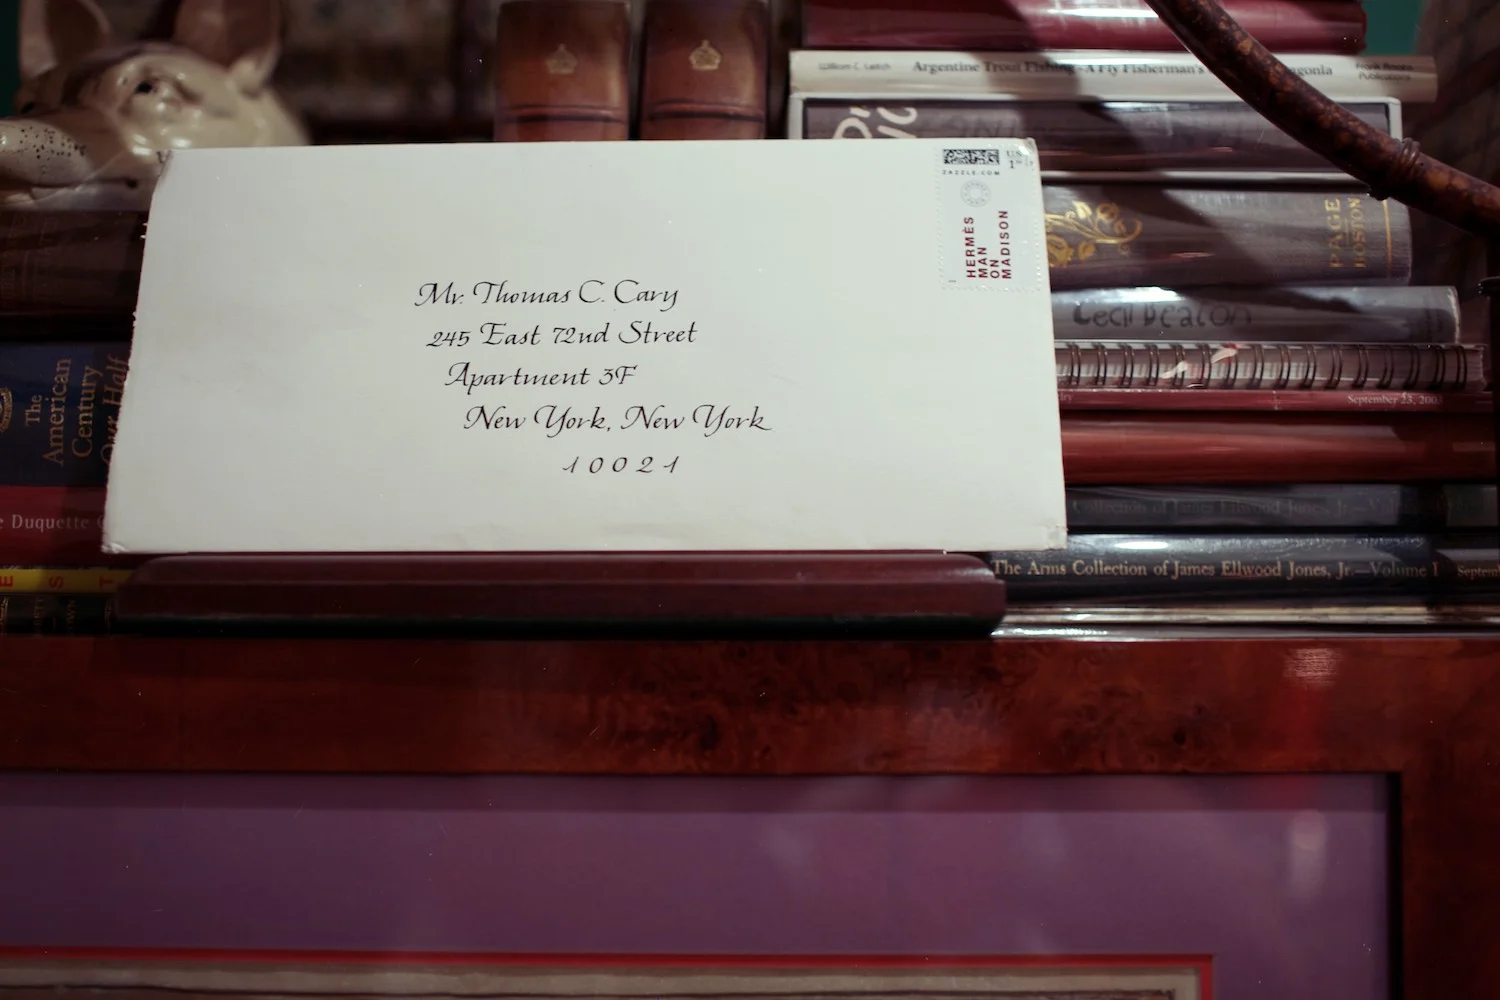 Mr. Thomas C. Cary
245 East 72nd Street
Apartment 3F
New York, New York
10021
ZAZZLE.COM
US
HERMÈS
MAN
ON
MADISON
William C. Leitch Argentine Trout Fishing—A Fly Fisherman's Frank Amato
Publications
PAGE
BOSTON
Cecil Beaton
September 23, 200
Collection of James Ellwood Jones, Jr.—Volume
The Arms Collection of James Ellwood Jones, Jr.—Volume I
The
American
Century
Our Half
Duquette
E S T